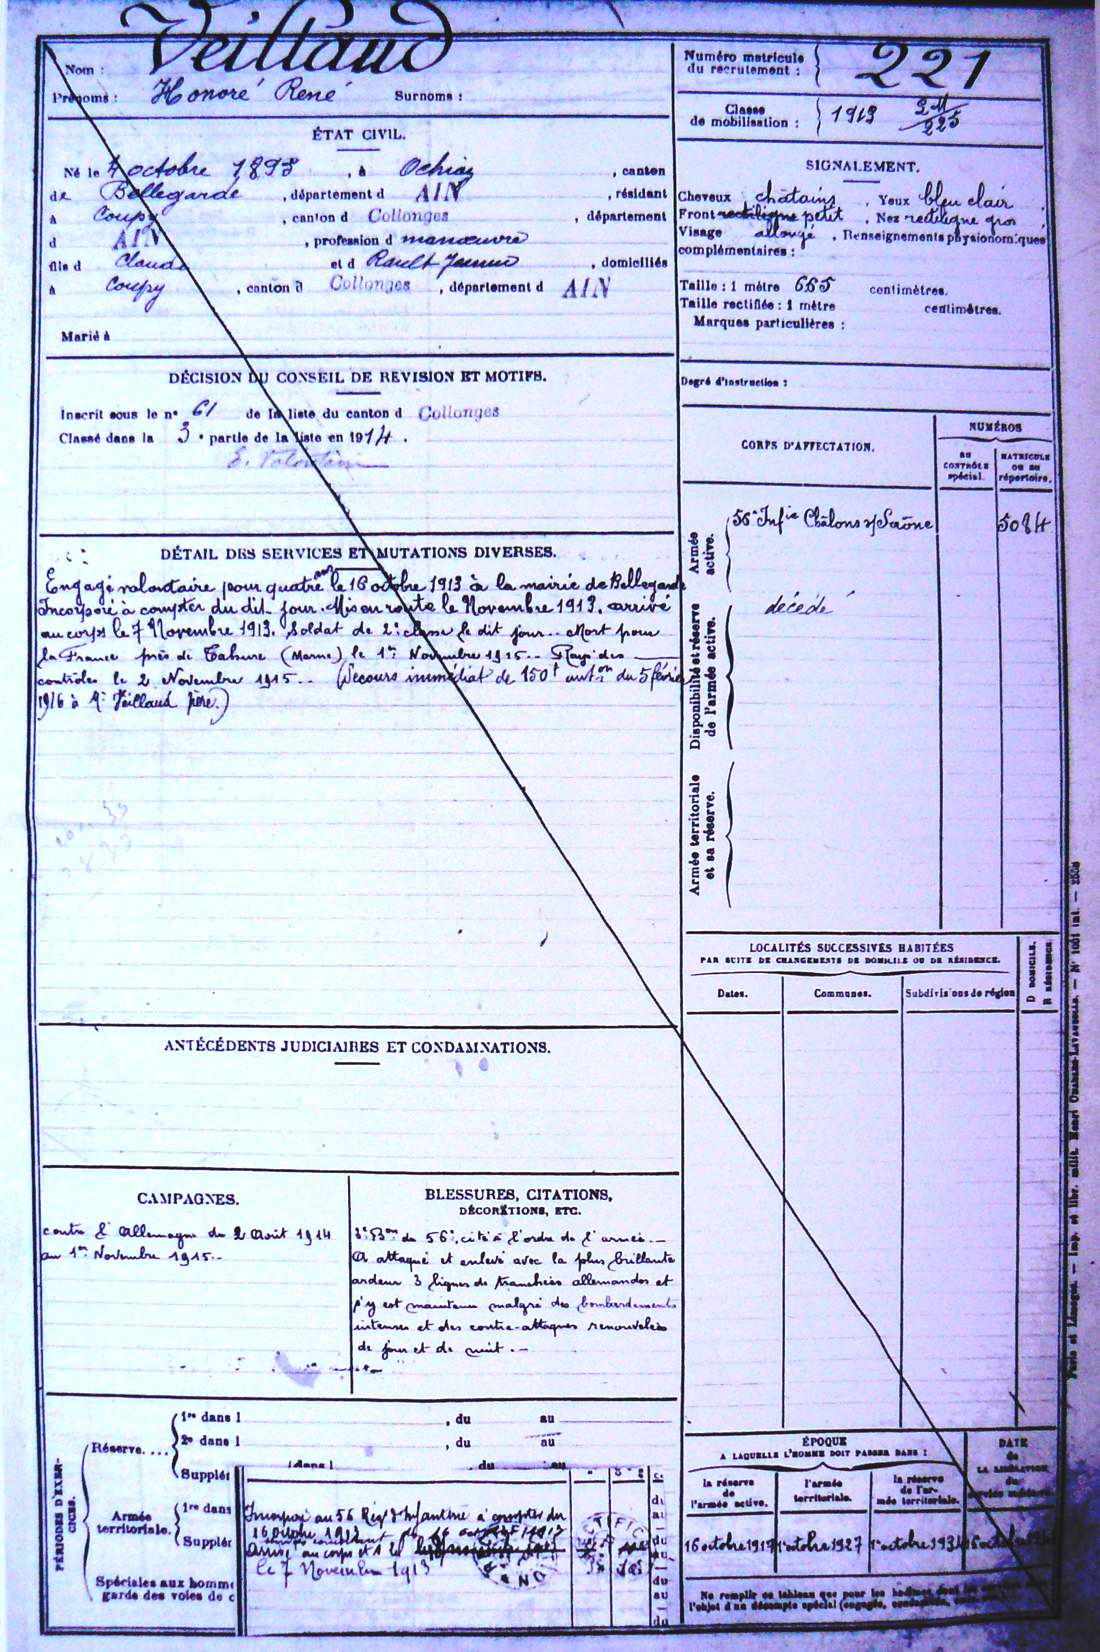 Veillaud
Nom :
Prénoms : Honoré René Surnoms :
ÉTAT CIVIL.
Né le 4 octobre 1893, à Ochiaz, canton
de Bellegarde, département d AIN, résidant
à Coupy, canton d Collonges, département
d AIN, profession d manœuvre
fils d Claude et d Rault, domiciliés
à Coupy, canton d Collonges, département d AIN
Marié à
DÉCISION DU CONSEIL DE REVISION ET MOTIFS.
Inscrit sous le n° 61 de la liste du canton d Collonges
Classé dans la 3e partie de la liste en 1914.
E. Volontaire
DÉTAIL DES SERVICES ET MUTATIONS DIVERSES.
Engagé volontaire pour quatre ans le 16 octobre 1913 à la mairie de Bellegarde
Incorporé à compter du dit jour. Mis en route le Novembre 1913, arrivé
au corps le 7 Novembre 1913. Soldat de 2e classe le dit jour.. Mort pour
la France près de Tahure (Marne) le 1er Novembre 1915.. Rayé des
contrôles le 2 Novembre 1915.. (Secours immédiat de 150f auton du 5 février
1916 à Mr Veillaud père.)
ANTÉCÉDENTS JUDICIAIRES ET CONDAMNATIONS.
CAMPAGNES.
contre l'Allemagne du 2 Août 1914
au 1er Novembre 1915..
BLESSURES, CITATIONS,
DÉCORATIONS, ETC.
3e Bon du 56e, cité à l'ordre de l'armée.—
A attaqué et enlevé avec la plus brillante
ardeur 3 lignes de tranchées allemandes et
s'y est maintenu malgré des bombardements
intenses et des contre-attaques renouvelées
de jour et de nuit.—
PÉRIODES D'EXERCICES.
Réserve....
1re dans l , du au
2e dans l , du au
Supplér
dans l du au
Armée
territoriale.
1re dans
Supplér
Spéciales aux homme
garde des voies de c
Incorporé au 56 Reg d'Infanterie à compter du
16 octobre 1913
le 7 Novembre 1913
Numéro matricule
du recrutement : 221
Classe
de mobilisation : 1913
SIGNALEMENT.
Cheveux châtains, Yeux bleu clair
Front rectiligne petit, Nez rectiligne gros
Visage allongé, Renseignements physionomiques
complémentaires :
Taille : 1 mètre 665 centimètres.
Taille rectifiée : 1 mètre centimètres.
Marques particulières :
Degré d'instruction :
CORPS D'AFFECTATION.
NUMÉROS
AU
CONTRÔLE
spécial.
MATRICULE
OU AU
répertoire.
Armée
active.
56e Infie Châlons s/Saône 5084
Disponibilité et réserve
de l'armée active.
décédé
Armée territoriale
et sa réserve.
LOCALITÉS SUCCESSIVES HABITÉES
PAR SUITE DE CHANGEMENTS DE DOMICILE OU DE RÉSIDENCE.
Dates.
Communes.
Subdivisions de région
D DOMICILE.
R RÉSIDENCE.
ÉPOQUE
A LAQUELLE L'HOMME DOIT PASSER DANS :
la réserve
de
l'armée active.
l'armée
territoriale.
la réserve
de l'ar-
mée territoriale.
DATE
de
LA LIBÉRATION
du
service militaire.
16 octobre 1917 1 octobre 1927 1 octobre 1934
Ne remplir ce tableau que pour les hommes dont les services
l'objet d'un décompte spécial (engagés,
Paris et Limoges. — Imp. et libr. milit. Henri CHARLES-LAVAUZELLE. —